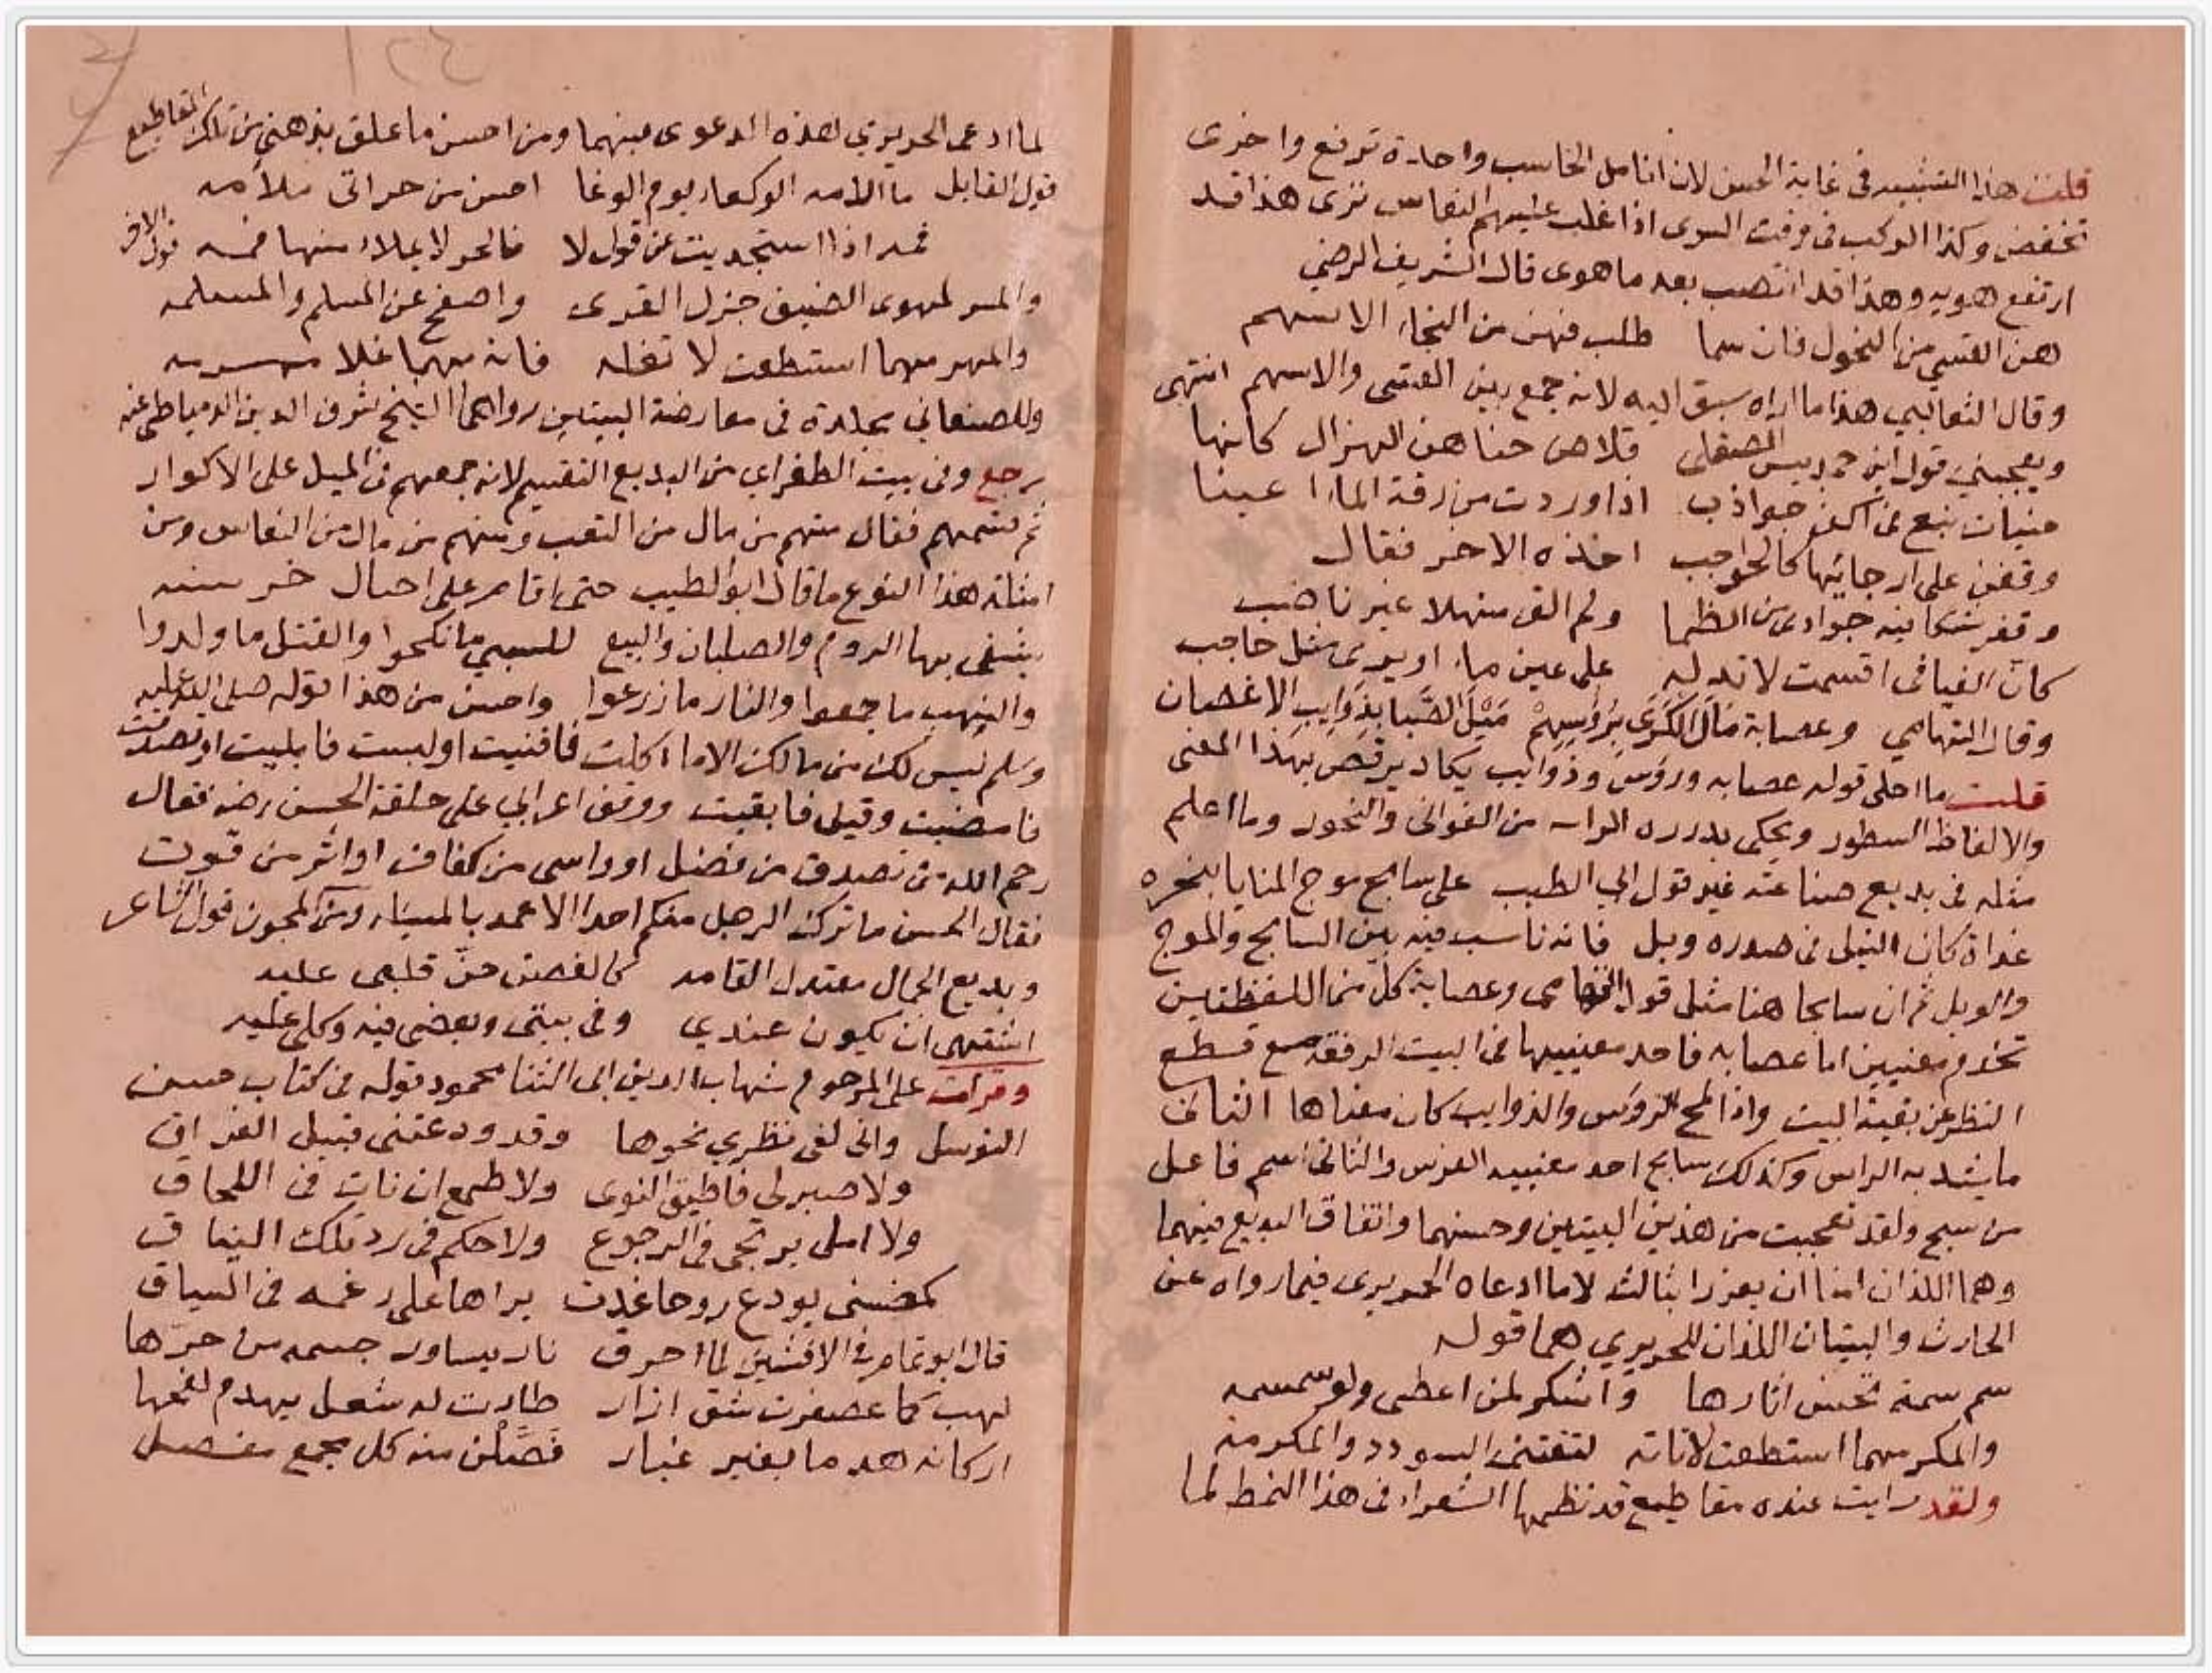 قلت هذا التشبيه في غاية الحسن لان انامل الحاسب واحدة ترفع واخرى
تخفض وكذا الركب في وقت السرى اذا غلب عليهم النعاس ترى هذا قد
ارتفع هويه وهذا قد انتصب بعد ما هوى قال الشريف الرضي
هن القسي من النحول فان سما طلب فهن من النجاء الاسهم
وقال الثعالبي هذا ما اراه سبق اليه لانه جمع بين القسي والاسهم انتهى
ويعجبني قول ابن حمديس الصقلى قلاص حناهن الهزال كانها
حنيات نبع في اكف جواذب اذا وردت من زرقة الماء اعينا
وقفن على ارجائها كالحواجب اخذه الاخر فقال
وقفر شكا فيه جوادى من الظما ولم الق منهلا غير ناضب
كان الفيافى اقسمت لا تدله على عين ماء او يرى مثل حاجب
وقال التهامي وعصابة مَالَ الكَرَى بِرُؤسِهِمْ مَيْلَ الصَّبا بِذَوَايِبِ الاغصان
قلت ما احلى قوله عصابه ورؤس وذوايب يكاد يرقص بهذا المعنى
والالفاظ السطور ويحكى بدرره من الغوانى والنحور وما اعلم
مثله في بديع صناعته غير قول ابي الطيب على سابح موج المنايا بنحره
غداة كان النبل في صدره وبل فانه ناسب فيه بين السابح والموج
والوبل ثم ان سابحا هنا مثل قول التهامى وعصابة كل من اللفظتين
تخدم معنيين اما عصابه فاحد معنييها في البيت الرفقة مع قطع
النظر عن بقية البيت واذا لمح الرؤس والذوايب كان معناها الثانى
ما يشد به الراس وكذلك سابح احد معنييه الفرس والثانى اسم فاعل
من سبح ولقد تعجبت من هذين البيتين وحسنهما واتفاق البديع فيهما
وهما اللذان امنا ان يعززا بثالث لا ما ادعاه الحريرى فيما رواه عن
الحارث والبيتان اللذان للحريري هما قوله
سم سمة تحسن اثارها واشكر لمن اعطى ولو سمسمه
والمكر مهما استطعت لا تاته لتقتنى السودد والمكرمة
ولقد رايت عنده مقاطيع قد نظمها الشعراء فى هذا النمط لما
لما ادعى الحريري لهذه الدعوى فيهما ومن احسن ما علق بذهني من تلك المقاطيع
قول القايل ما الامه الوكعاء يوم الوغا احسن من حر اتى ملامه
فمه اذا استجديت عن قول لا فالحر لا يملاء منها فمه قول الاخر
والمس لمهوى الضيف جزل القرى واصفح عن المسلم والمسلمه
والمهر مهما استطعت لا تغله فانه مهما غلا
وللصنعاني مجلدة في معارضة البيتين رواهما الشيخ شرف الدين الدمياطي عنه
رجع وفى بيت الطغراي من البديع التقسيم لانه جمعهم في الميل على الاكوار
ثم قسمهم فقال منهم من مال من التعب ومنهم من مال من النعاس ومن
امثلة هذا النوع ما قال ابو الطيب حتى اقام على ارباض خرشنه
يشقى بها الروم والصلبان والبيع للسبي ما نكحوا والقتل ما ولدوا
والنهب ما جمعوا والنار ما زرعوا واحسن من هذا قوله صلى الله عليه
وسلم ليس لك من مالك الا ما اكلت فافنيت او لبست فابليت او تصدقت
فامضيت وقيل فابقيت ووقف اعرابي على حلقة الحسن رضه فقال
رحم الله من تصدق من فضل او واسى من كفاف او اثر من قوت
فقال الحسن ما ترك الرجل منكم احدا الا عمه بالمسئله ومن المجون قول الشاعر
وبديع الجمال معتدل القامه كالغصن حنّ قلبى عليه
اشتهى ان يكون عندي وفى بيتى وبعضى فيه وكلى عليه
وقرات على المرحوم شهاب الدين ابى الثنا محمود قوله في كتاب حسن
التوسل وانى لفى نظري نحوها وقد ودعتنى قبيل الفراق
ولا صبر لى فاطيق النوى ولا طمع ان نات في اللحاق
ولا امل يرتجى في الرجوع ولا حكم في رد تلك النياق
كمضنى يودع روحا غدت يراها على رغمه فى السياق
قال ابو تمام في الافشين لما احرق نار يساور جسمه من حرّها
لهب كما عصفرت شق ازار طارت له شعل يهدم لفحها
اركانه هدما بغير غبار فَصَّلْنَ منه كل مجمع مفصل